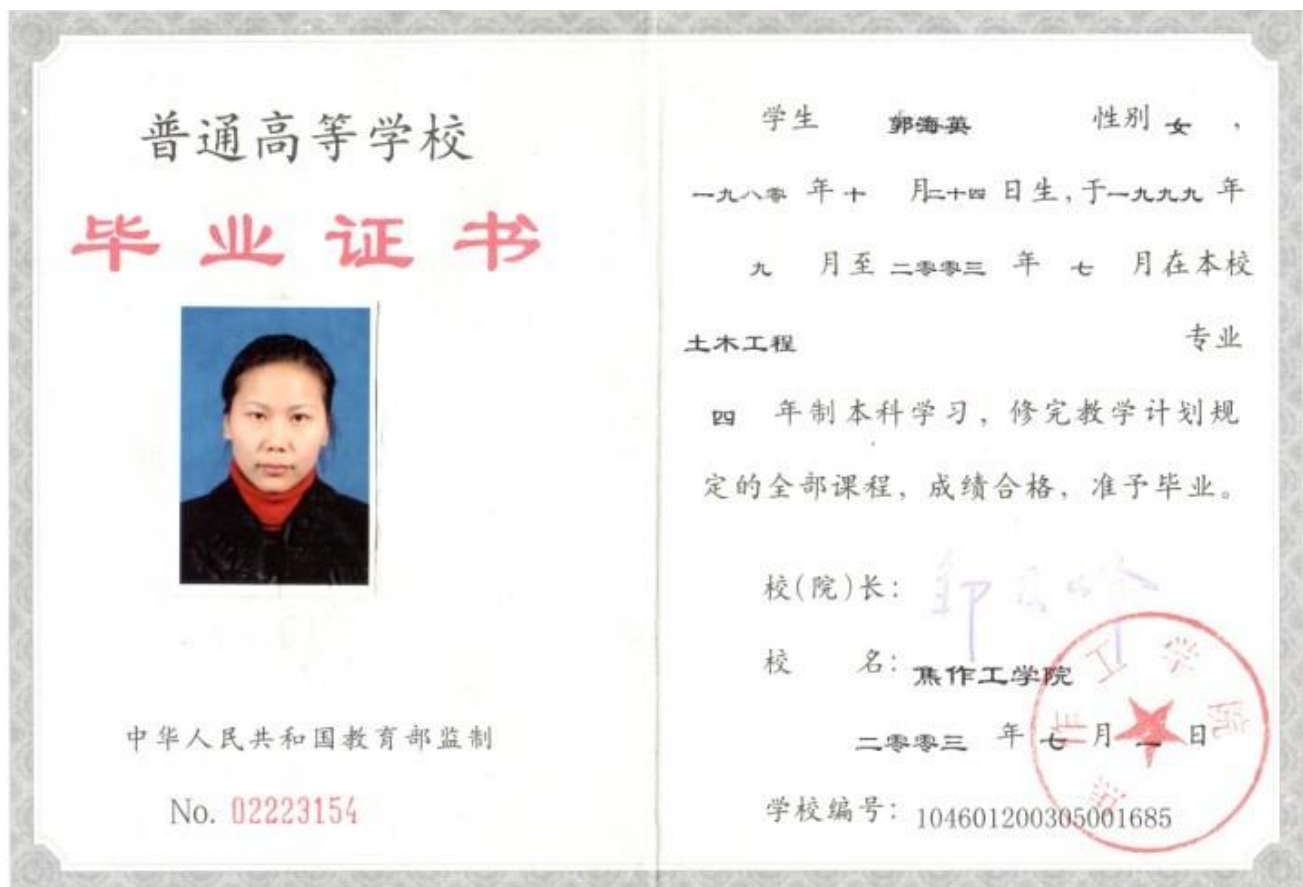 普通高等学校
毕业证书
中华人民共和国教育部监制
No. 02223154
学生 郭海英 性别 女 ,
一九八零 年 十 月二十四日生,于一九九九 年
九 月至 二零零三 年 七 月在本校
土木工程 专业
四 年制本科学习, 修完教学计划规
定的全部课程, 成绩合格, 准予毕业。
校(院)长:
校 名: 焦作工学院
二零零三 年 七 月 一 日
学校编号: 104601200305001685
焦作工学院